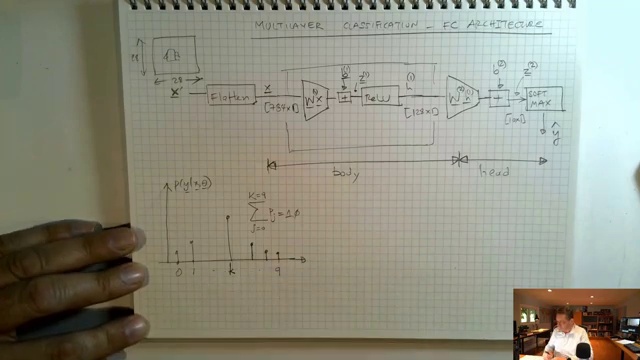 MULTILAYER CLASSIFICATION - FC ARCHITECTURE
28
28
x
Flatten
x
[784x1]
W⁽¹⁾x
b⁽¹⁾
+
z⁽¹⁾
ReLU
h⁽¹⁾
[128x1]
W⁽²⁾h⁽¹⁾
b⁽²⁾
+
z⁽²⁾
[10x1]
SOFT
MAX
ŷ
body
head
p(y|x,θ)
K=9
∑ Pj = 1.0
j=0
0 1 .. k 9